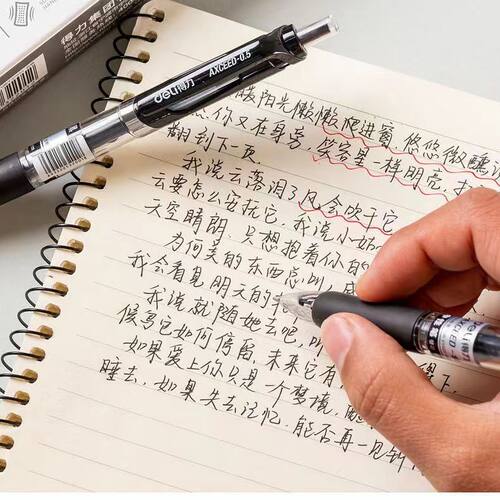 得力集团
deli得力 AXCEED-0.5
暖阳光懒懒爬进窗,悠悠微醺
你又在身旁,笑容是一样明亮,
翻到下一页.
我说云落泪了风会吹干它
云要怎么安抚它,我说小
天空晴朗,只想抱着你的
为何美的东西总叫
我会看见明天的
我说就随她去吧,
候鸟它如何停留,未来它有
如果爱上你只是一个梦境,
睡去,如果失去记忆,能否再一见钟